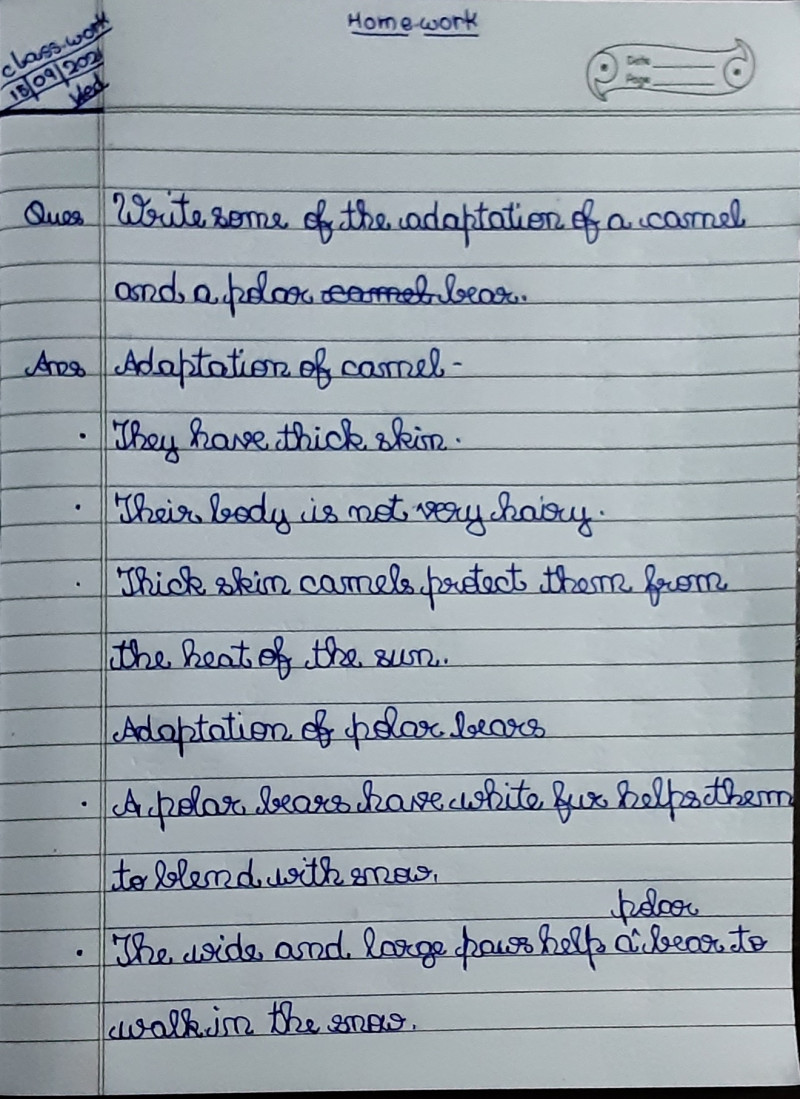 Home work
class-work
15/09/202
Wed
Date
Page
Ques Write some of the adaptation of a camel
and a polar camel bear.
Ans Adaptation of camel -
· They have thick skin.
· Their body is not very hairy.
· Thick skin camels protect them from
the heat of the sun.
Adaptation of polar bears
· A polar bears have white fur helps them
to blend with snow.
polar
· The wide and large paws help a ^ bear to
walk in the snow.